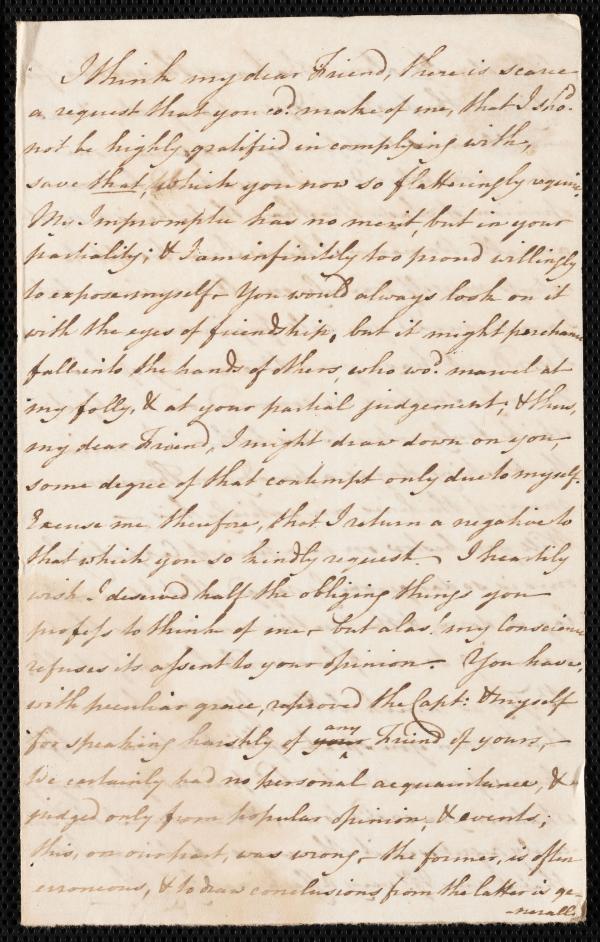 I think my dear Friend, there is scarce
a request that you cod. make of me, that I shod.
not be highly gratified in complying with,
save that, which you now so flatteringly require.
My Impromptu has no merit, but in your
partiality; & I am infinitely too proud willingly
to expose myself– You would always look on it
with the eyes of friendship, but it might perchance
fall into the hands of others, who wod. marvel at
my folly, & at your partial judgement; & thus,
my dear Friend, I might draw down on you,
some degree of that contempt only due to myself.
Excuse me therefore, that I return a negative to
that which you so kindly request. – I heartily
wish I deserved half the obliging things you
profess to think of me – but alas! my Conscience
refuses its assent to your opinion – You have,
with peculiar grace, reproved the Capt: & myself
for speaking harshly of your any Friend of yours, –
We certainly had no personal acquaintance, &
judged only from popular opinion, & events;
this, on our part, was wrong – the former, is often
erroneous, & to draw conclusions from the latter is ge-
-nerally